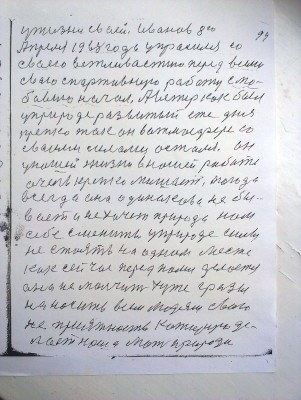 94
у жизни своей. Иванов 8го
Апреля 1968 году украсился со
своею ветливостью перед всеми
свою спортивную работу
начал. А ветер как был
у природе развитый еже дня
так он в атмосфере со
своими силами остался. он
у нашей жизни в нашей работе
очень крепко мешает, погода
всегда она одинакова не бы-
вает а не хочет природа нам
себе сменить у природе
не стоять на одном месте
как сейчас перед нами делает
она не молчит а уже сразы
наносить всем людям свою
не приятность которую де-
лает наша мать природа